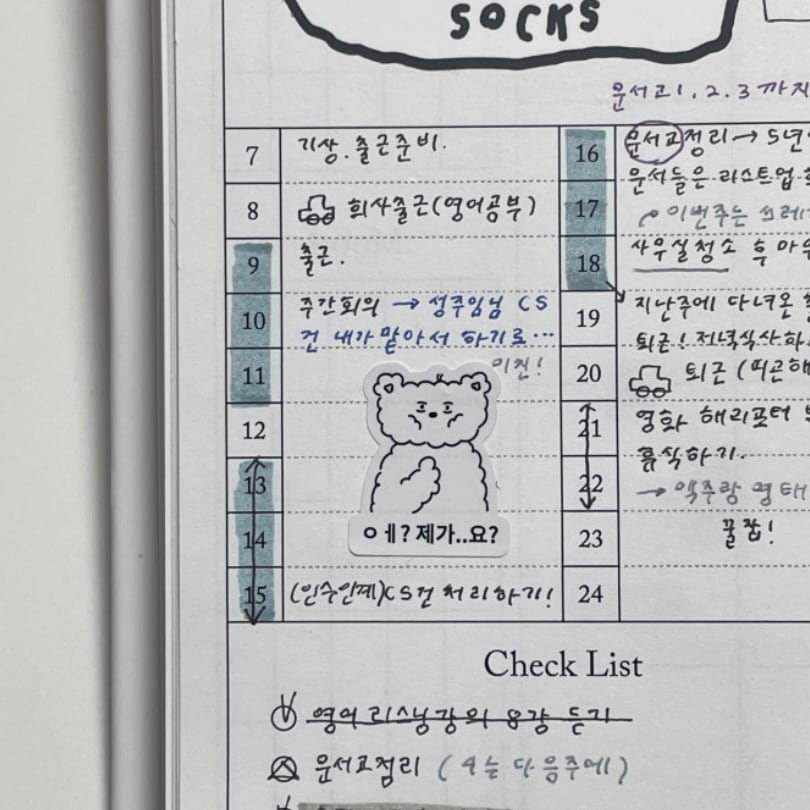 SOCKS
문서고 1.2.3 까지
7 기상. 출근준비.
8 회사출근(영어공부)
9 출근.
10 주간회의 → 성주임님 CS
건 내가 맡아서 하기로…
11
12
13
14
에? 제가..요?
15 (인수인계)CS건 처리하기!
16 문서고정리 → 5년
문서들은 리스트업
17 이번주는 쓰레
18 사무실청소 후
19 지난주에 다녀온
퇴근! 저녁식사
20 퇴근
21 영화 해리포터
휴식하기.
22 → 맥주랑 먹태
23 꿀잠!
24
Check List
영어 리스닝 강의 8강 듣기
문서고정리 (4는 다음주에)